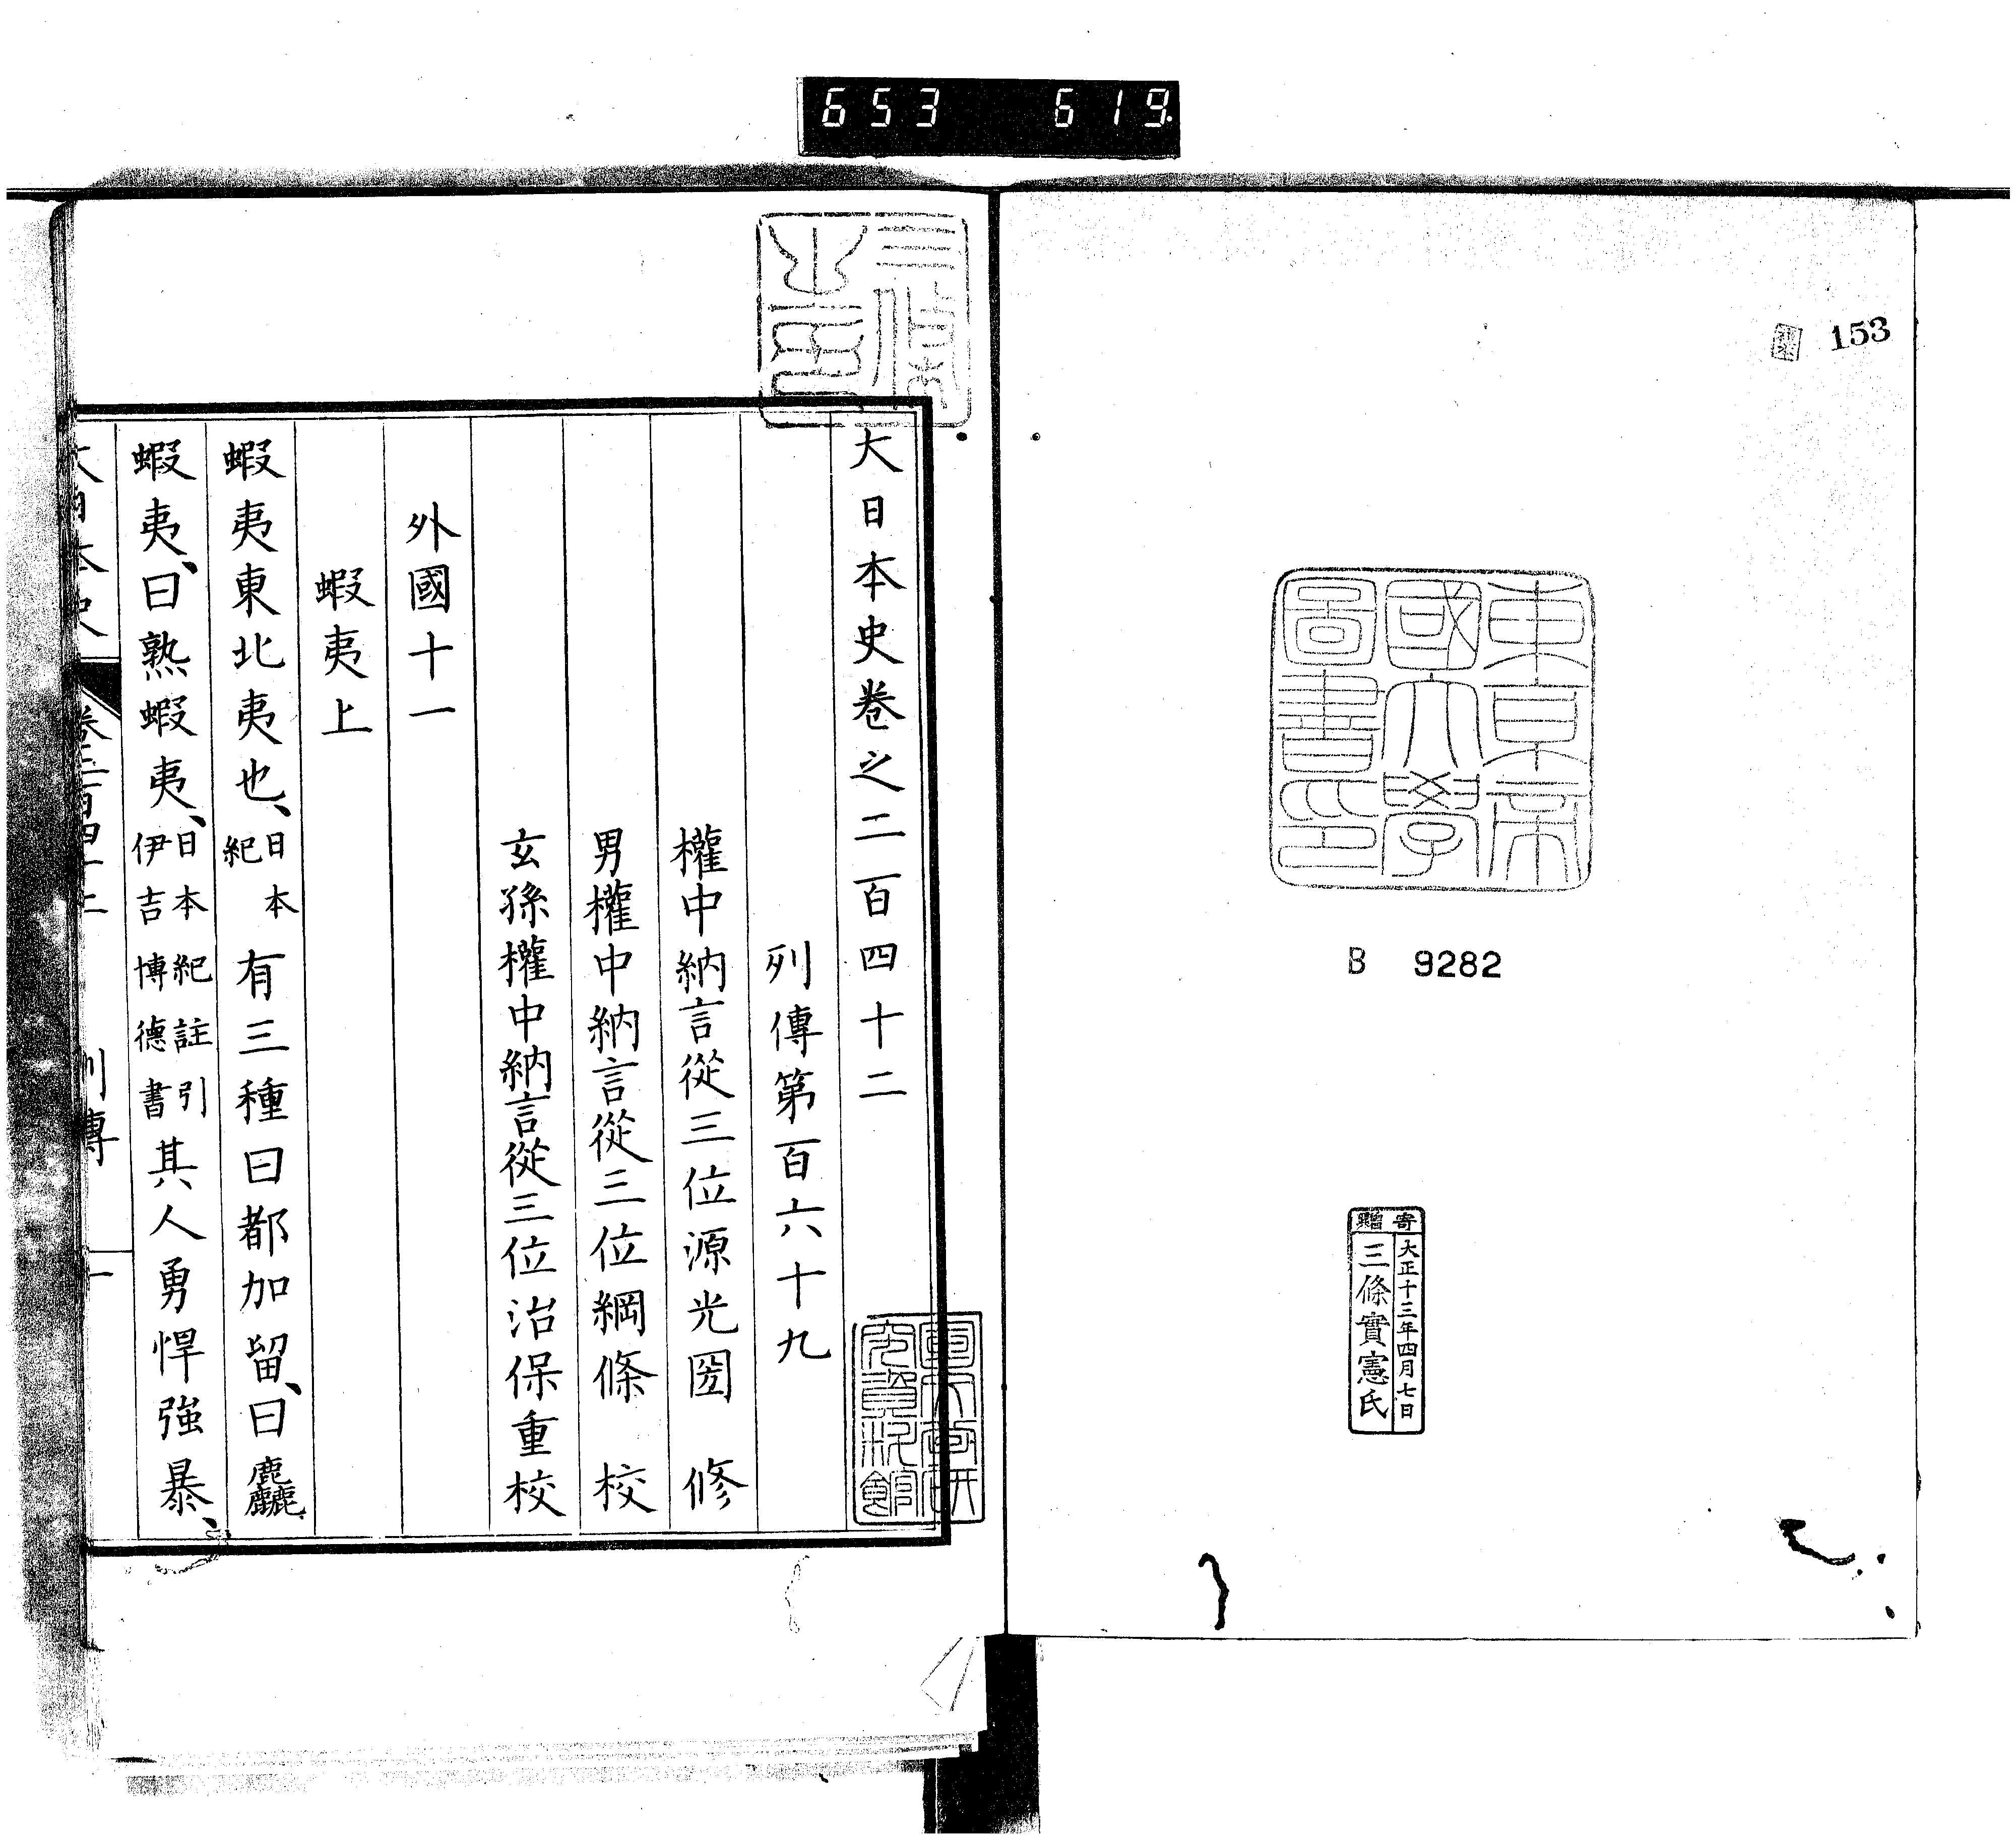 653 619
153
東京帝國大學圖書印
B 9282
寄贈
大正十三年四月七日
三條實憲氏
大日本史卷之二百四十二
列傳第百六十九
權中納言從三位源光圀 修
男權中納言從三位綱條 校
玄孫權中納言從三位治保重校
外國十一
蝦夷上
蝦夷東北夷也、日本紀有三種曰都加留、曰麤
蝦夷、曰熟蝦夷、日本紀註引伊吉博德書其人勇悍強暴、
大日本史 卷二百四十二 列傳 一